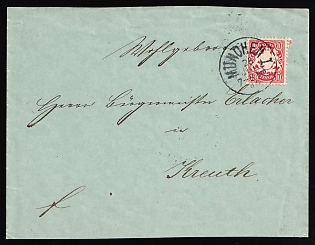 Wohlgeboren
MÜNCHEN
Herrn Bürgermeister Erlacher
in
Kreuth.
f